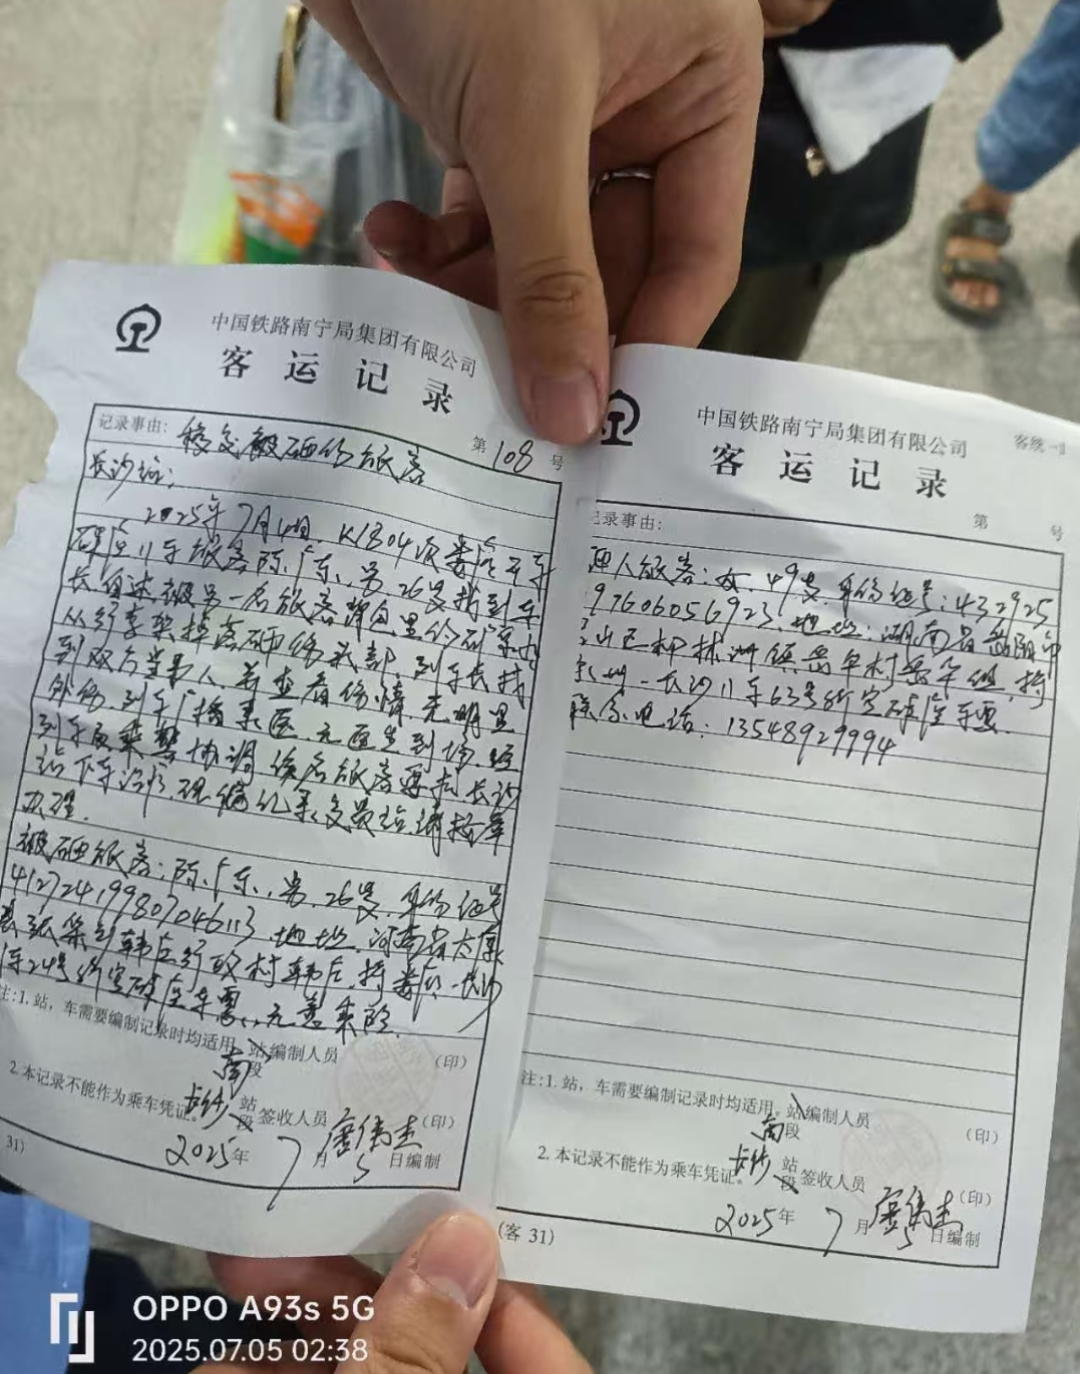 中国铁路南宁局集团有限公司
客运记录
记录事由: 移交被砸伤旅客
第108号
长沙站:
2025年7月4日, K1804次娄底开车
硬座11车旅客陈广东, 男 26岁找到车
长自述被另一名旅客背包里的矿泉水
从行李架掉落砸伤头部, 列车长找
到双方当事人, 并查看伤情, 无明显
外伤, 列车广播寻医, 无医生到场, 经
列车及乘警协调, 该名旅客要求长沙
站下车治疗, 现编记录交贵站, 请接洽
办理.
被砸旅客: 陈广东, 男, 26岁, 身份证号
412724199807046113 地址: 河南省太康
县张集镇韩庄行政村韩庄, 持娄底-长沙
车24号新空硬座车票, 无意乘险.
注:1. 站,车需要编制记录时均适用。
南
站段 编制人员 (印)
2. 本记录不能作为乘车凭证。
长沙
站段 签收人员 唐伟杰 (印)
2025年7月5日编制
31)
中国铁路南宁局集团有限公司
客统一
客运记录
第 号
记录事由:
人旅客: 女, 49岁, 身份证号: 432925
197606056923, 地址: 湖南省岳阳市
山区柳林洲镇岳华村岳华组, 持
-长沙11车63号新空硬座车票.
联系电话: 13548929994
注:1. 站,车需要编制记录时均适用。
南
站段 编制人员 (印)
2. 本记录不能作为乘车凭证。
长沙
站段 签收人员 唐伟杰 (印)
2025年7月5日编制
(客 31)
OPPO A93s 5G
2025.07.05 02:38